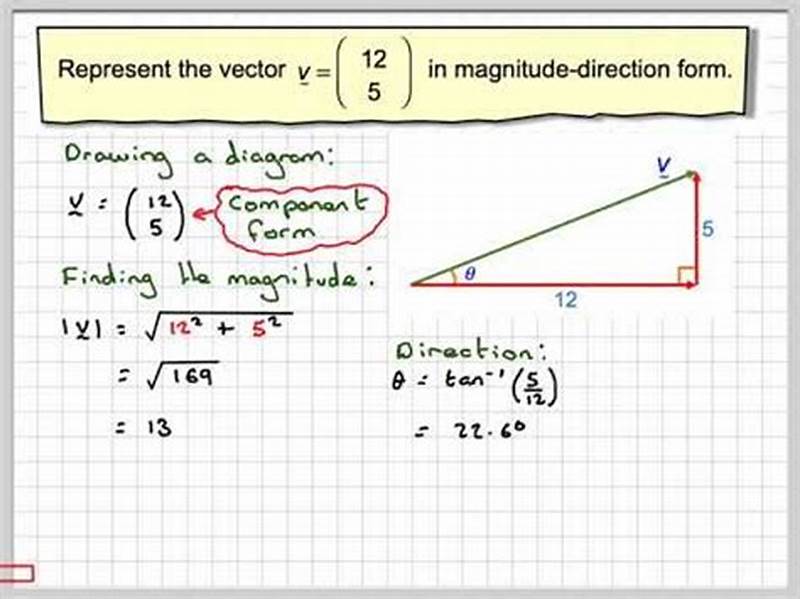 Represent the vector v = ( 12 5 ) in magnitude-direction form.
Drawing a diagram:
v = ( 12 5 )
Component
form
Finding the magnitude:
|v| = √12² + 5²
= √169
= 13
v
5
θ
12
Direction:
θ = tan⁻¹ (5/12)
= 22.6°